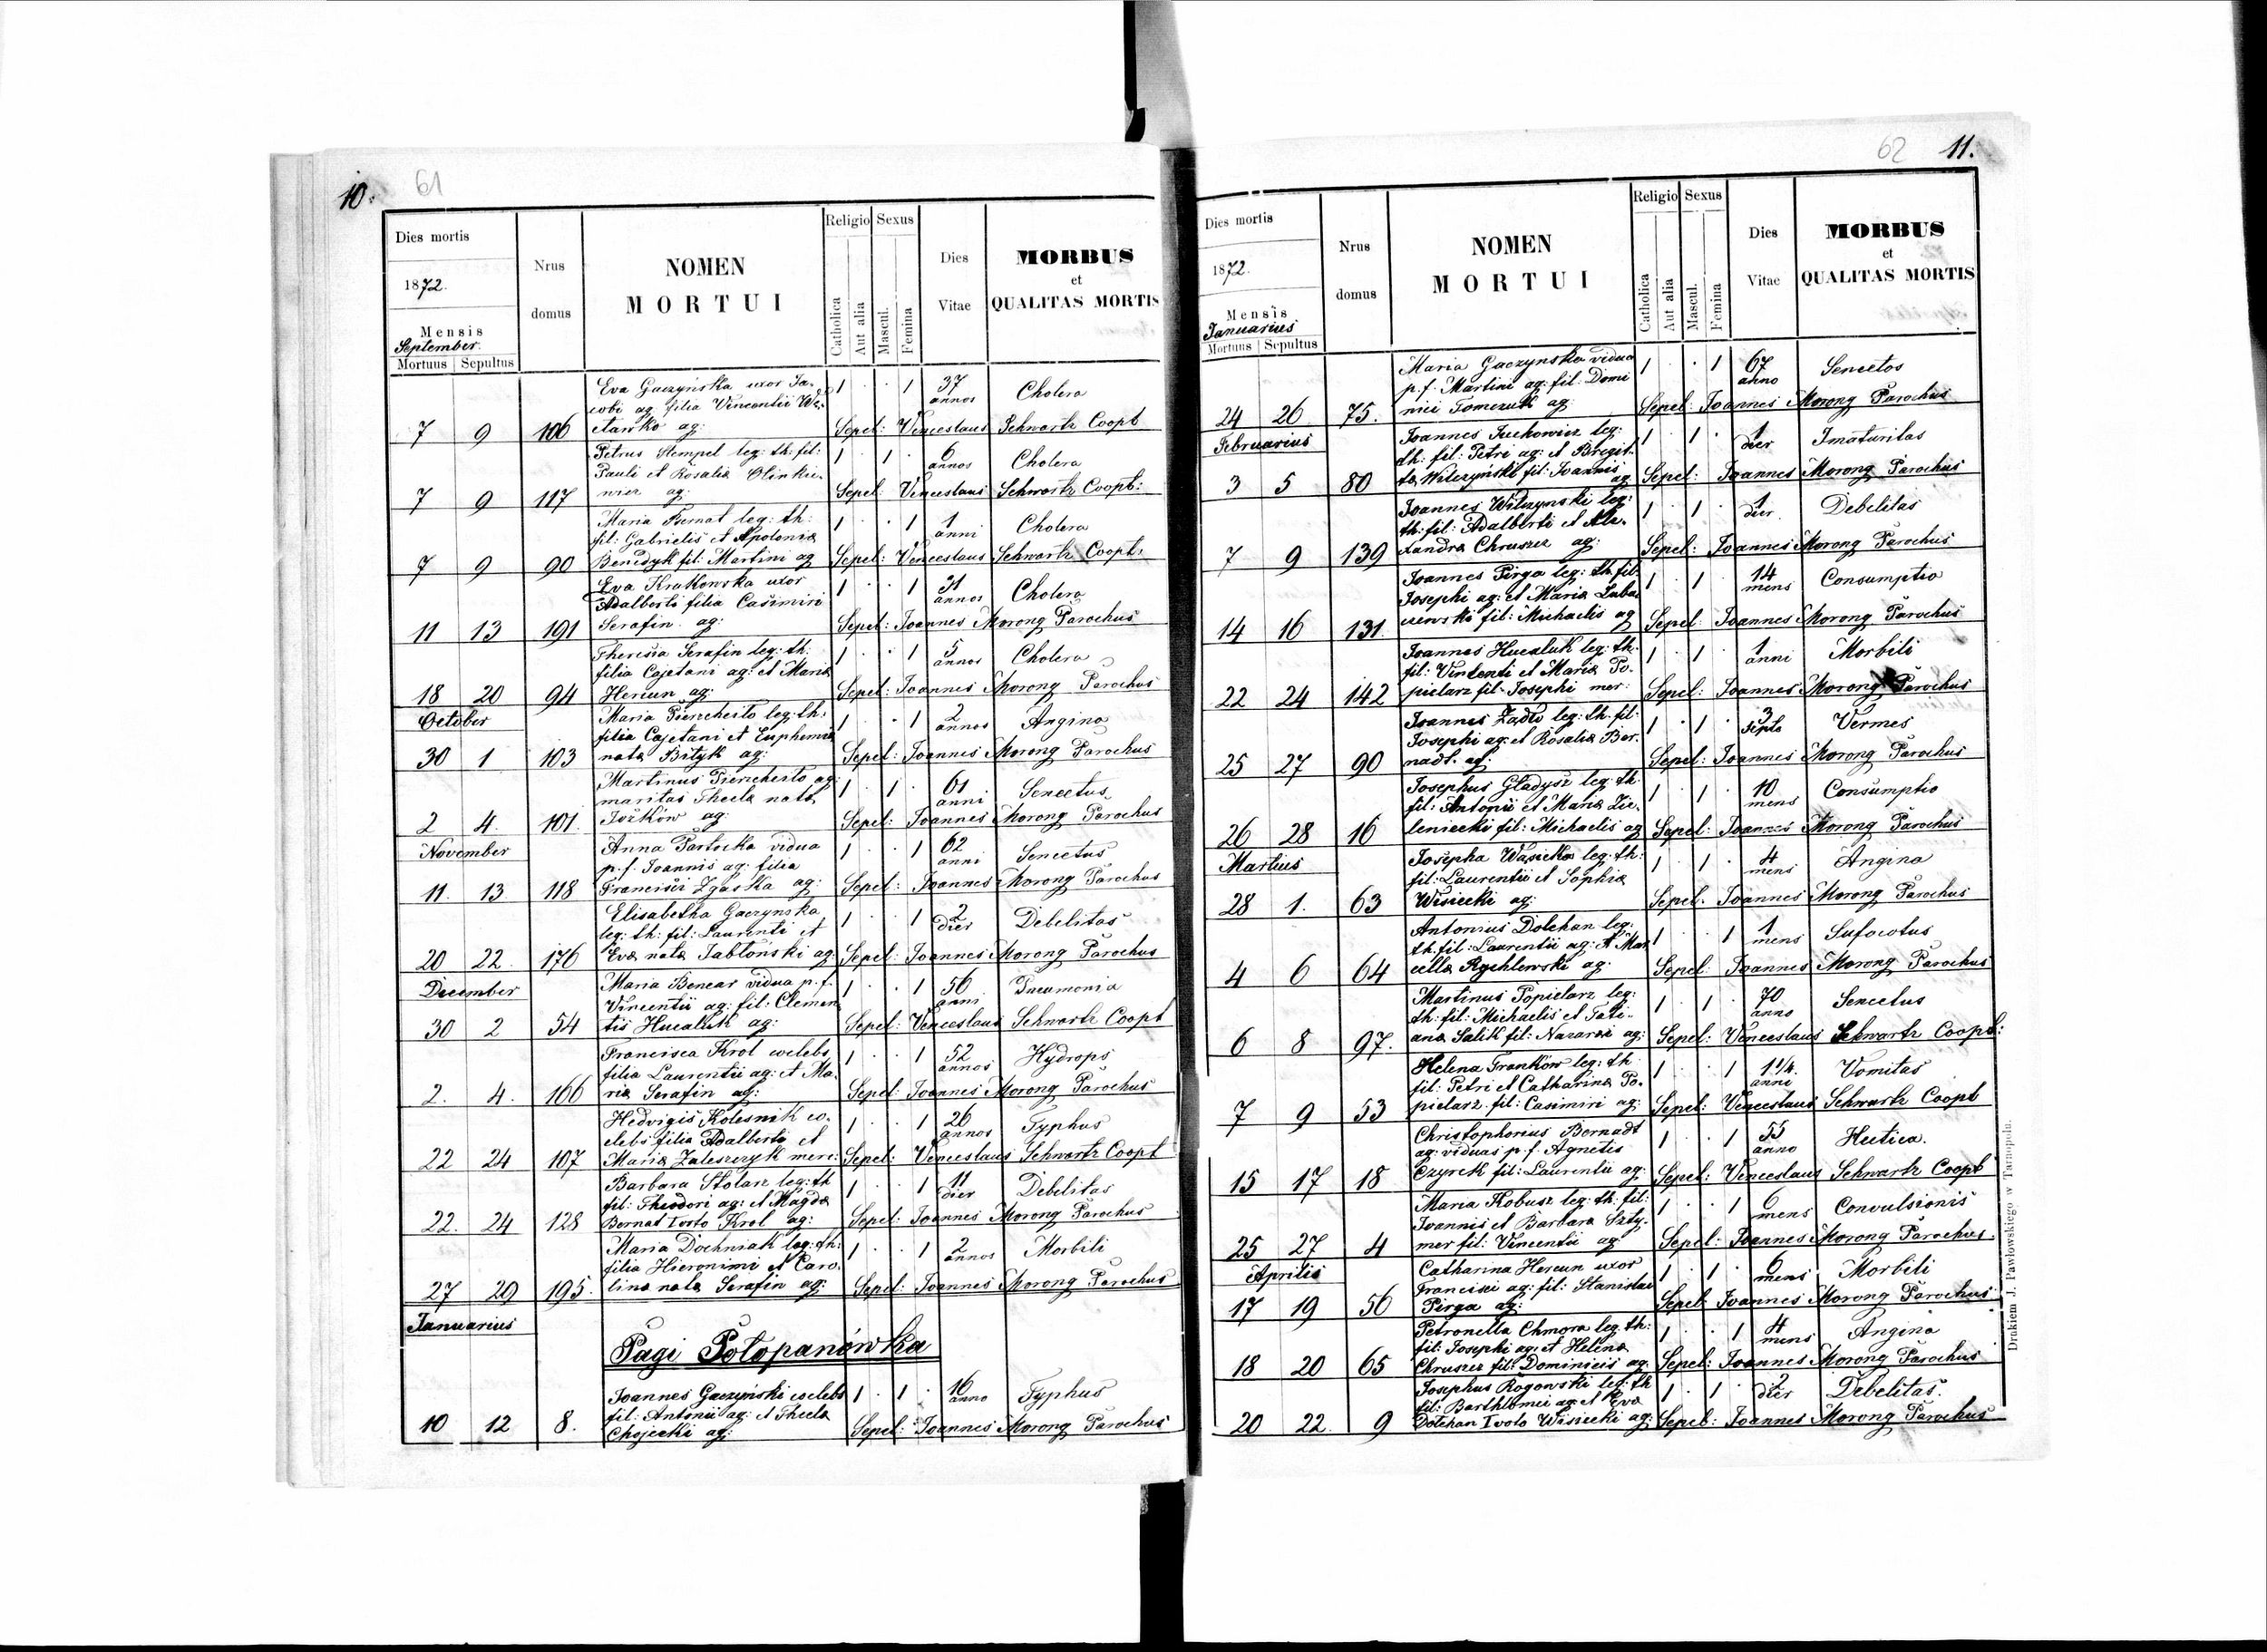 10.
61
Dies mortis
1872.
Mensis
September.
Mortuus Sepultus
Nrus
domus
NOMEN
MORTUI
Religio
Catholica
Aut alia
Sexus
Mascul.
Femina
Dies
Vitae
MORBUS
et
QUALITAS MORTIS
Eva Gaczyńska uxor Ja- 1 · · 1 37 Cholera
cobi ag: filia Vincentii annos
7 9 106 ag: Sepel: Venceslaus Schwartz Coopt
Petrus Stempel leg: th: fil: 1 · 1 · 6 Cholera
Pauli et Rosaliæ Olinkie- annos
7 9 117 wicz ag: Sepel: Venceslaus Schwartz Coopt:
Maria Bernat leg: th: 1 · · 1 1 Cholera
fil: Gabrielis et Apoloniæ anni
7 9 90 Benedyk fil: Martini ag Sepel: Venceslaus Schwartz Coopt:
Eva Krakowska uxor 1 · · 1 31 Cholera
Adalberti filia Casimiri annos
11 13 191 Serafin ag: Sepel: Joannes Morong Parochus
Theresia Serafin leg: th: 1 · · 1 5 Cholera
filia Cajetani ag: et Mariæ annos
18 20 94 Hercun ag: Sepel: Joannes Morong Parochus
October
Maria Piencheito leg: th: 1 · · 1 2 Angina
filia Cajetani et Euphemiæ annos
30 1 103 natæ Bityk ag: Sepel: Joannes Morong Parochus
Martinus Piencheito ag: 1 · 1 · 61 Senectus
maritas Theclæ natæ anni
2 4. 101. ag: Sepel: Joannes Morong Parochus
November
Anna Partocka vidua 1 · · 1 62 Senectus
p. f. Joannis ag: filia anni
11. 13 118 Francisci Zgaska ag: Sepel: Joannes Morong Parochus
Elisabetha Gaczynska 1 · · 1 2 Debelitas
leg: th: fil: Laurenti et dier
20 22. 176 Evæ natæ Jabłoński ag: Sepel: Joannes Morong Parochus
December
Maria Bencar vidua p. f. 1 · · 1 56 Pneumonia
Vincentii ag: fil: Clemen anni
30 2 54 tis Hucaluk ag: Sepel: Venceslaus Schwartz Coopt
Francisca Krol coelebs 1 · · 1 52 Hydrops
filia Laurentii ag: et Ma- annos
2. 4. 166 riæ Serafin ag: Sepel: Joannes Morong Parochus
Hedvigis Kolesnik co- 1 · · 1 26 Typhus
elebs filia Adalberti et annos
22 24 107 Mariæ Zaleszczyk merc: Sepel: Venceslaus Schwartz Coopt
Barbara Stolarz leg: th 1 · · 1 11 Debelitas
fil: Theodori ag: et Magdæ dier
22. 24 128 Bernat Ivoto Krol ag: Sepel: Joannes Morong Parochus
Maria Dochniak leg: th: 1 · · 1 2 Morbili
filia Hieronimi et Caro- annos
27 29 195. linæ natæ Serafin ag: Sepel: Joannes Morong Parochus
Januarius
Pagi Potopanówka
Joannes Gaczyński coelebs 1 · 1 · 16 Typhus
fil: Antonii ag: et Theclæ anno
10 12 8. Chojecki ag: Sepel: Joannes Morong Parochus
62
11.
Dies mortis
1872.
Mensis
Januarius
Mortuus Sepultus
Nrus
domus
NOMEN
MORTUI
Religio
Catholica
Aut alia
Sexus
Mascul.
Femina
Dies
Vitae
MORBUS
et
QUALITAS MORTIS
Maria Gaczynska vidua 1 · · 1 67 Senectos
p. f. Martini ag: fil: Domi anno
24 26 75. nici Tomczuk ag: Sepel: Joannes Morong Parochus
Februarius
Joannes Juchowicz leg: 1 · 1 · 1 Imaturitas
th: fil: Petri ag: et Bregit- dier
3 5 80 tæ Wilczyński fil: Joannis ag Sepel: Joannes Morong Parochus
Joannes Wilczynski leg: 1 · 1 · 1 Debelitas
th: fil: Adalberti et Ale- dier
7 9 139 xandræ Chruszcz ag: Sepel: Joannes Morong Parochus
Joannes Pirga leg: th. fil: 1 · 1 · 14 Consumptio
Josephi ag: et Mariæ Luba mens
14 16 131. czewski fil: Michaelis ag Sepel: Joannes Morong Parochus
Joannes Hucaluk leg: th: 1 · 1 · 1 Morbili
fil: Vincenti et Mariæ Po- anni
22 24 142 pielarz fil: Josephi mer: Sepel: Joannes Morong Parochus
Joannes Żądło leg: th. fil: 1 · 1 · 3 Vermes
Josephi ag: et Rosaliæ Ber- septo
25 27 90 nadt. ag: Sepel: Joannes Morong Parochus
Josephus Gładysz leg: th 1 · 1 · 10 Consumptio
fil: Antonii et Mariæ Zie- mens
26 28 16 leniecki fil: Michaelis ag Sepel: Joannes Morong Parochus
Martius
Josepha Wąsicka leg: th: 1 · 1 · 4 Angina
fil: Laurentii et Sophiæ mens
28 1. 63 Wisiecki ag: Sepel: Joannes Morong Parochus
Antonius Dolehan leg: 1 · · 1 1 Sufocotus
th. fil: Laurentii ag: et Mar mens
4 6 64 cellæ Rychlewski ag: Sepel: Joannes Morong Parochus
Martinus Popielarz leg: 1 · 1 · 70 Senectus
th: fil: Michaelis et Tati- anno
6 8 97. anæ Salik fil: Nazarzi ag: Sepel: Venceslaus Schwartz Coopt:
Helena Franków leg: th 1 · · 1 1 1/4. Vomitas
fil: Petri et Catharinæ Po- anni
7 9 53 pielarz fil: Casimiri ag: Sepel: Venceslaus Schwartz Coopt
Christophorius Bernadt 1 · · 1 55 Hectica.
ag: viduas p. f. Agnetis anno
15 17 18 Czyrek fil: Laurentii ag: Sepel: Venceslaus Schwartz Coopt
Maria Kobusz leg: th: fil: 1 · · 1 6 Convulsionis
Joannis et Barbara Szty- mens
25 27 4 mer fil: Vincentii ag Sepel: Joannes Morong Parochus.
Aprilis
Catharina Hercun uxor 1 · 1 · 6 Morbili
Francisci ag: fil: Stanislai mens
17 19 56 Pirga ag: Sepel: Joannes Morong Parochus
Petronella Chmora leg: th: 1 · · 1 4 Angina
fil: Josephi ag: et Helenæ mens
18 20 65 Chruszcz fil: Dominicis ag: Sepel: Joannes Morong Parochus
Josephus Rogowski leg: th 1 · 1 · 2 Debelitas.
fil: Barthlomei ag: et Eva dier
20 22. 9 Dolehan Ivoto Wisiecki ag: Sepel: Joannes Morong Parochus
Drukiem J. Pawłowskiego w Tarnopolu.